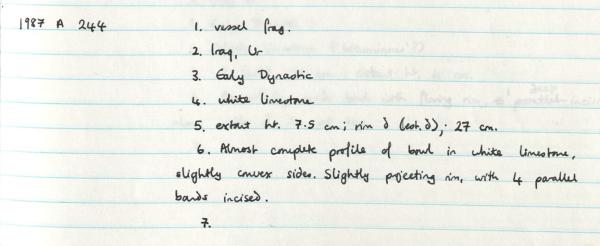 1987 A 244 1. vessel frag.
2. Iraq, Ur
3. Early Dynastic
4. white limestone
5. extant ht. 7.5 cm; rim d (est. d); 27 cm.
6. Almost complete profile of bowl in white limestone,
slightly convex sides. Slightly projecting rim, with 4 parallel
bands incised.
7.